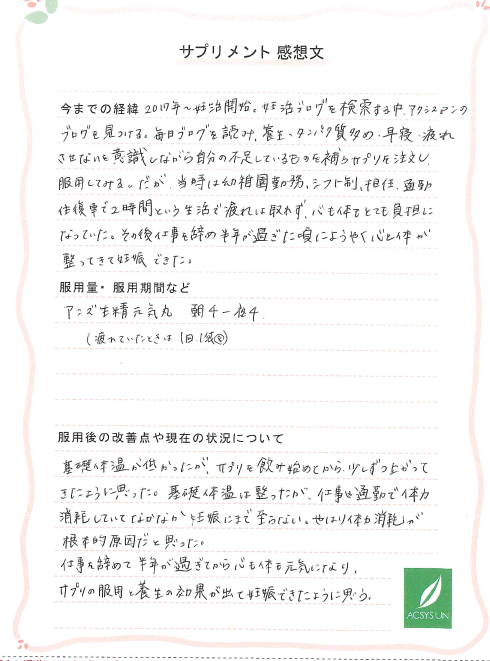 サプリメント 感想文
今までの経緯 2017年〜妊活開始。妊活ブログを検索する中、アクシスアンの
ブログを見つける。毎日ブログを読み、養生、タンパク質多め・早寝・疲れ
させないを意識しながら自分の不足しているものを補うサプリを注文し
服用してみる。だが、当時は幼稚園勤務、シフト制、担任、通勤
往復車で2時間という生活で疲れは取れず、心も体もとても負担に
なっていた。その後仕事を辞め半年が過ぎた頃にようやく心と体が
整ってきて妊娠できた。
服用量・服用期間など
アニズ生精元気丸 朝4-夜4
(疲れていたときは1日1袋
服用後の改善点や現在の状況について
基礎体温が低かったが、サプリを飲み始めてから、少しずつ上がって
きたように思った。基礎体温は整ったが、仕事と通勤で体力
消耗していてなかなか妊娠にまで至らない。やはり「体力消耗」が
根本的原因だと思った。
仕事を辞めて半年が過ぎてから心も体も元気になり、
サプリの服用と養生の効果が出て妊娠できたように思う。
ACSYS UN